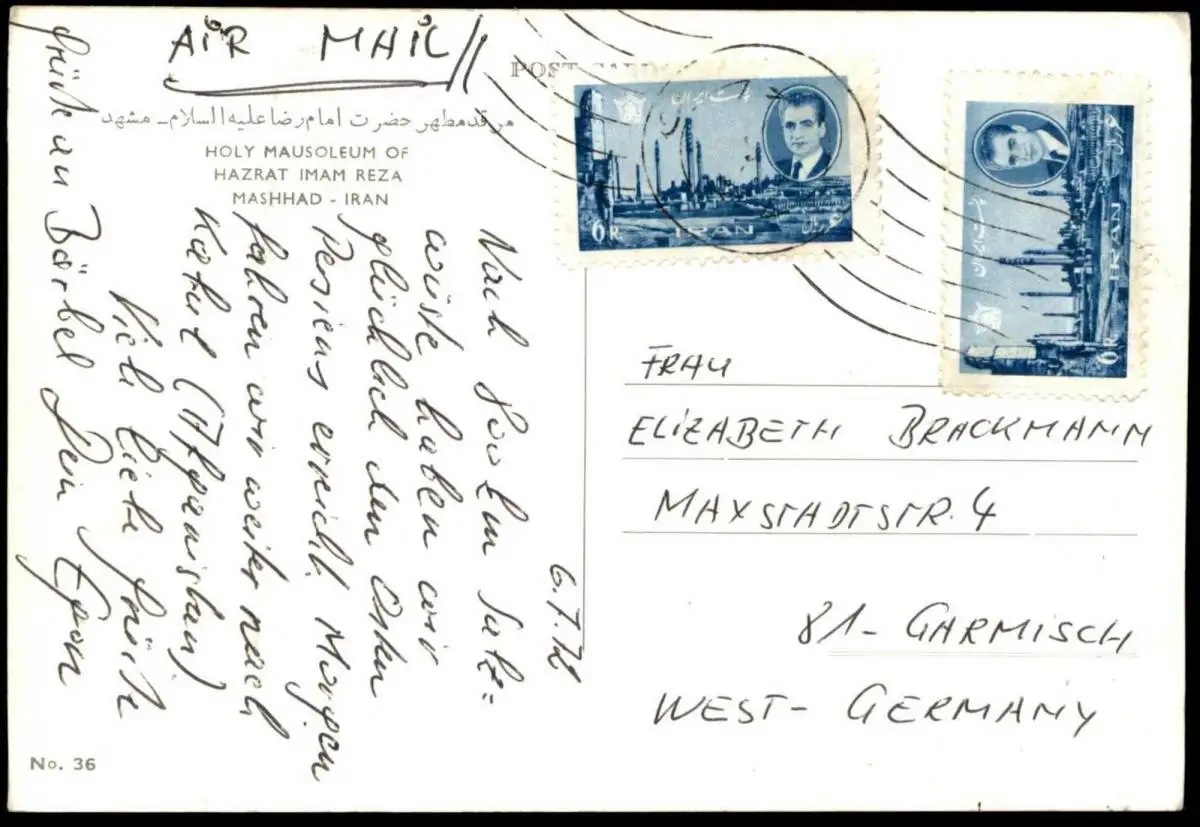 AIR MAIL
مرقد مطهر حضرت امام رضا علیه السلام - مشهد
HOLY MAUSOLEUM OF
HAZRAT IMAM REZA
MASHHAD - IRAN
POST CARD
پست ایران
6 R.
IRAN
ریال
پست ایران
6 R.
IRAN
ریال
6.7.72
Nach großer Salz=
wüste haben wir
glücklich den Osten
Persiens erreicht. Morgen
fahren wir weiter nach
Kabul (Afganistan)
Viele liebe Grüße
Dein Egon
Grüße an Bärbel
FRAU
ELIZABETH BRACKMANN
MAXSTADTSTR. 4
81- GARMISCH
WEST- GERMANY
No. 36